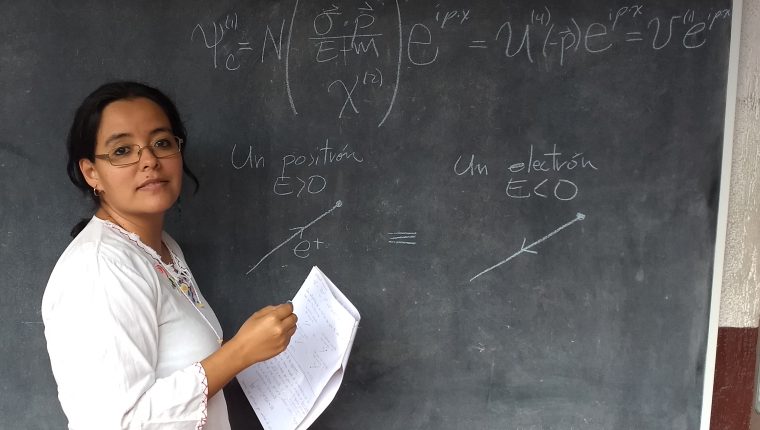 ψ_c^(1) = N ( σ⃗·p⃗ / E+m  χ^(2) ) e^ip·x = u^(4)(-p⃗) e^ip·x = v^(1) e^ip·x
Un positrón
E>0
e+
≡
Un electrón
E<0